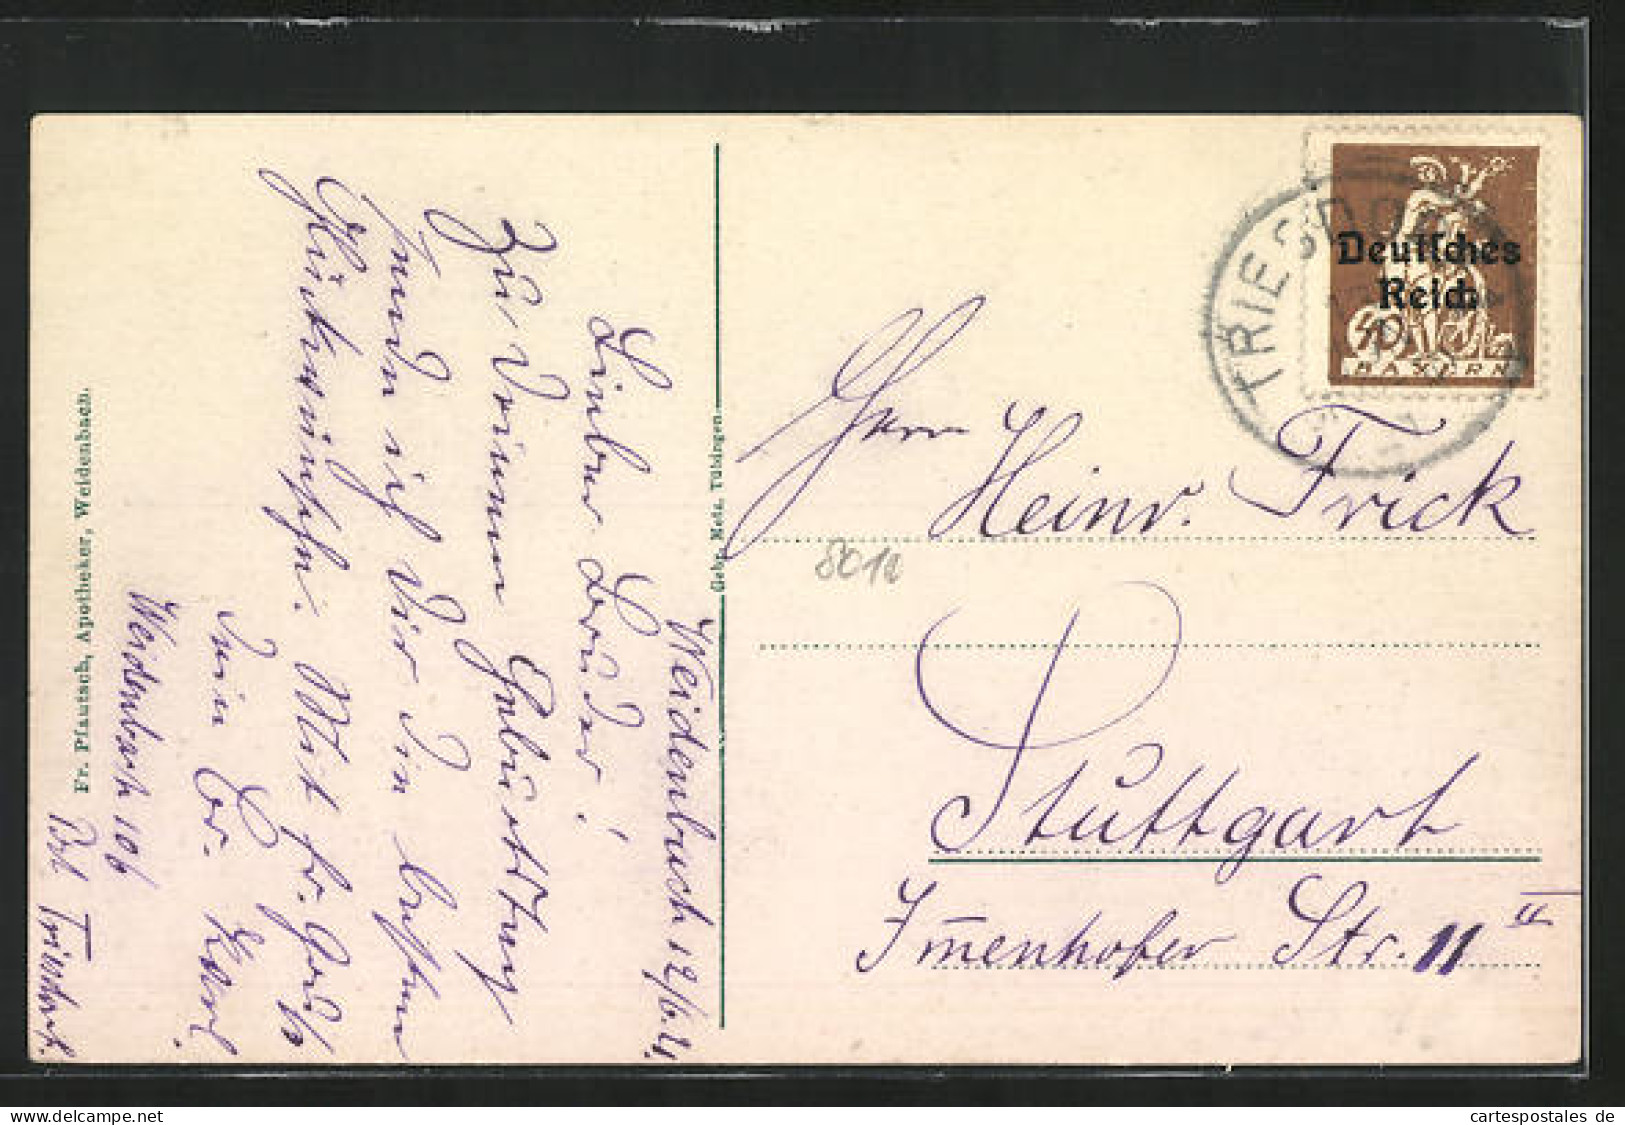 Weidenbach 12/6.21.
Lieber Bruder!
Zu Deinem Geburtstag
sende ich dir die besten
Glückwünsche. Mit fr. Gruß
Dein Br. Karl.
Weidenbach 106
Post Triesdorf.
Fr. Pfautsch, Apotheker, Weidenbach.
Gebr. Metz, Tübingen.
TRIESDORF
Deutsches
Reich
40
BAYERN
Herrn
Heinr. Frick
8012
Stuttgart
Imenhofer Str. 11 II
cartespostales de